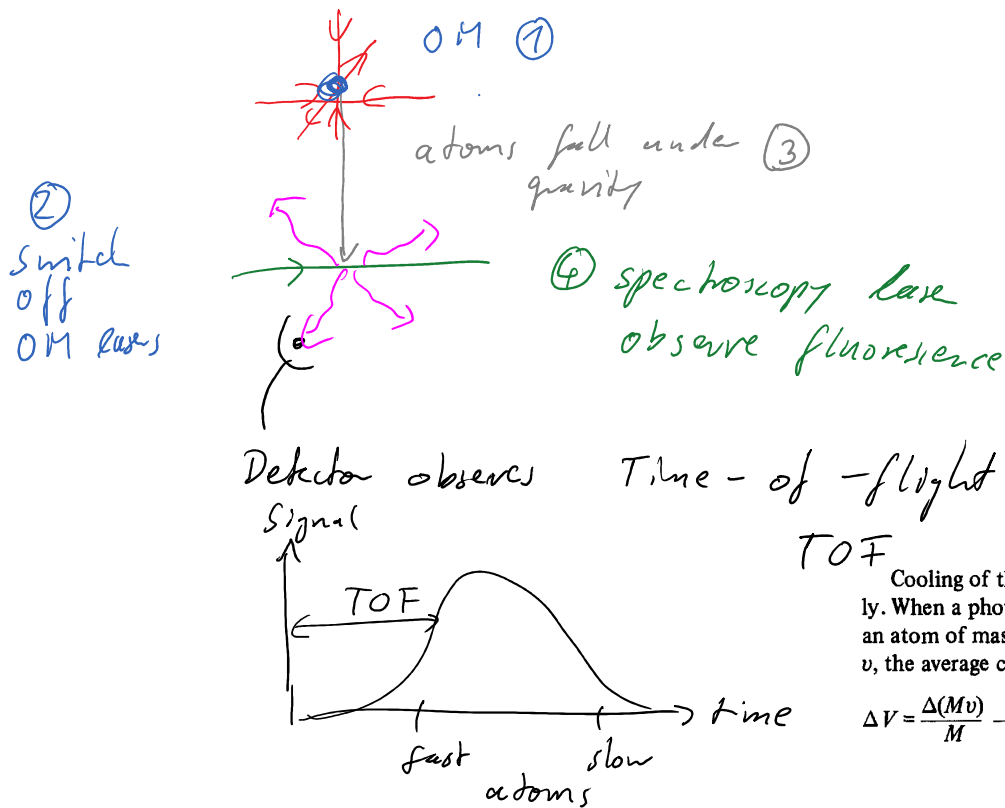 OM ①
atoms fall under ③
gravity
②
switch
off
OM lasers
④ spectroscopy laser
observe fluoresience
Detector observes Time-of-flight
TOF
Signal
TOF
time
fast
slow
atoms
Cooling of th
ly. When a phot
an atom of mas
υ, the average c
ΔV = Δ(Mυ)/M –